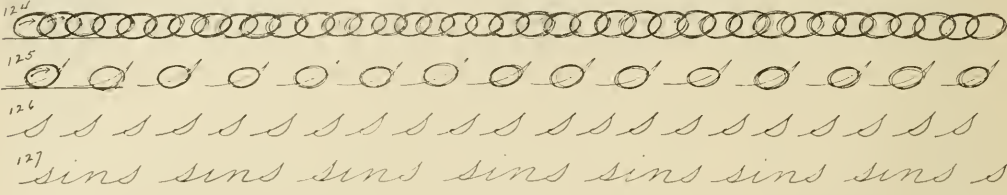 124
125 o o o o o o o o o o o o o o o
126 s s s s s s s s s s s s s s s s s s s s s
127 sins sins sins sins sins sins sins s